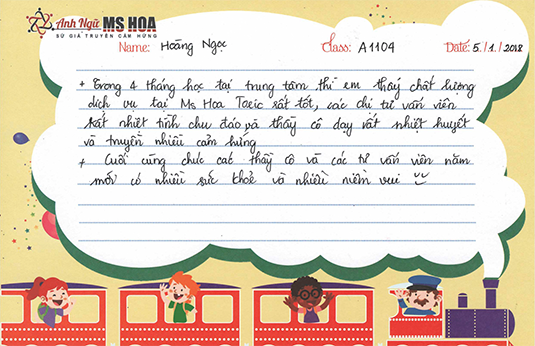 Anh Ngữ MS HOA
SỨ GIẢ TRUYỀN CẢM HỨNG
Name: Hoàng Ngọc Class: A1104 Date: 5/1/2018
+ Trong 4 tháng học tại trung tâm thì em thấy chất lượng
dịch vụ tại Ms Hoa Toeic rất tốt, các chị tư vấn viên
rất nhiệt tình chu đáo và thầy cô dạy rất nhiệt huyết
và truyền nhiều cảm hứng
+ Cuối cùng chúc các thầy cô và các tư vấn viên năm
mới có nhiều sức khoẻ và nhiều niềm vui